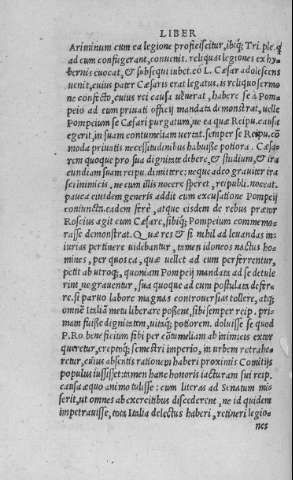 LIBER
Ariminum cum ea legione proficiscitur, ibiq; Tri. ple. q
ad eum confugerant, conuenit. reliquas legiones ex hy
bernis euocat, & subsequi iubet. eò L. Cæsar adolescens
uenit, cuius pater Cæsaris erat legatus. is reliquo sermo
ne confecto, cuius rei causa uenerat, habere se à Pom=
peio ad eum priuati officij mandata demonstrat, uelle
Pompeium se Cæsari purgatum, ne ea quæ Reipu. causa
egerit, in suam contumeliam uerteret. semper se Reipu. cō
moda priuatis necessitudinibus habuisse potiora. Cæsa=
rem quoque pro sua dignitate debere, & studium, & ira
cundiam suam reipu. dimittere: neque adeo grauiter ira
sci inimicis, ne cum illis nocere speret, reipubli. noceat.
pauca eiusdem generis addit cum excusatione Pompeij
coniuncta. eadem ferè, atque eisdem de rebus prætor
Roscius agit cum Cæsare, sibiq; Pompeium commemo=
rasse demonstrat. Quæ res & si nihil ad leuandas in
iurias pertinere uidebantur, tamen idoneos nactus ho
mines, per quos ea, quæ uellet ad eum perferrentur,
petit ab utroq;, quoniam Pompeij mandata ad se detule
rint, ne grauentur, sua quoque ad eum postulata deferre
re. si paruo labore magnas controuersias tollere, atq;
omnē Italiā metu liberare possent. sibi semper reip. pri=
mam fuisse dignitatem, uitaq; potiorem. doluisse se quod
P. Ro. beneficium sibi per cōtumeliam ab inimicis extor
queretur, ereptoq; semestri imperio, in urbem retrahe=
retur, cuius absentis rationem haberi proximis Comitijs
populus iussisset: tamen hanc honoris iacturam sui reip.
causa æquo animo tulisse: cum literas ad Senatum mi=
serit, ut omnes ab exercitibus discederent, ne id quidem
impetrauisse, tota Italia delectus haberi, retineri legio=
nes